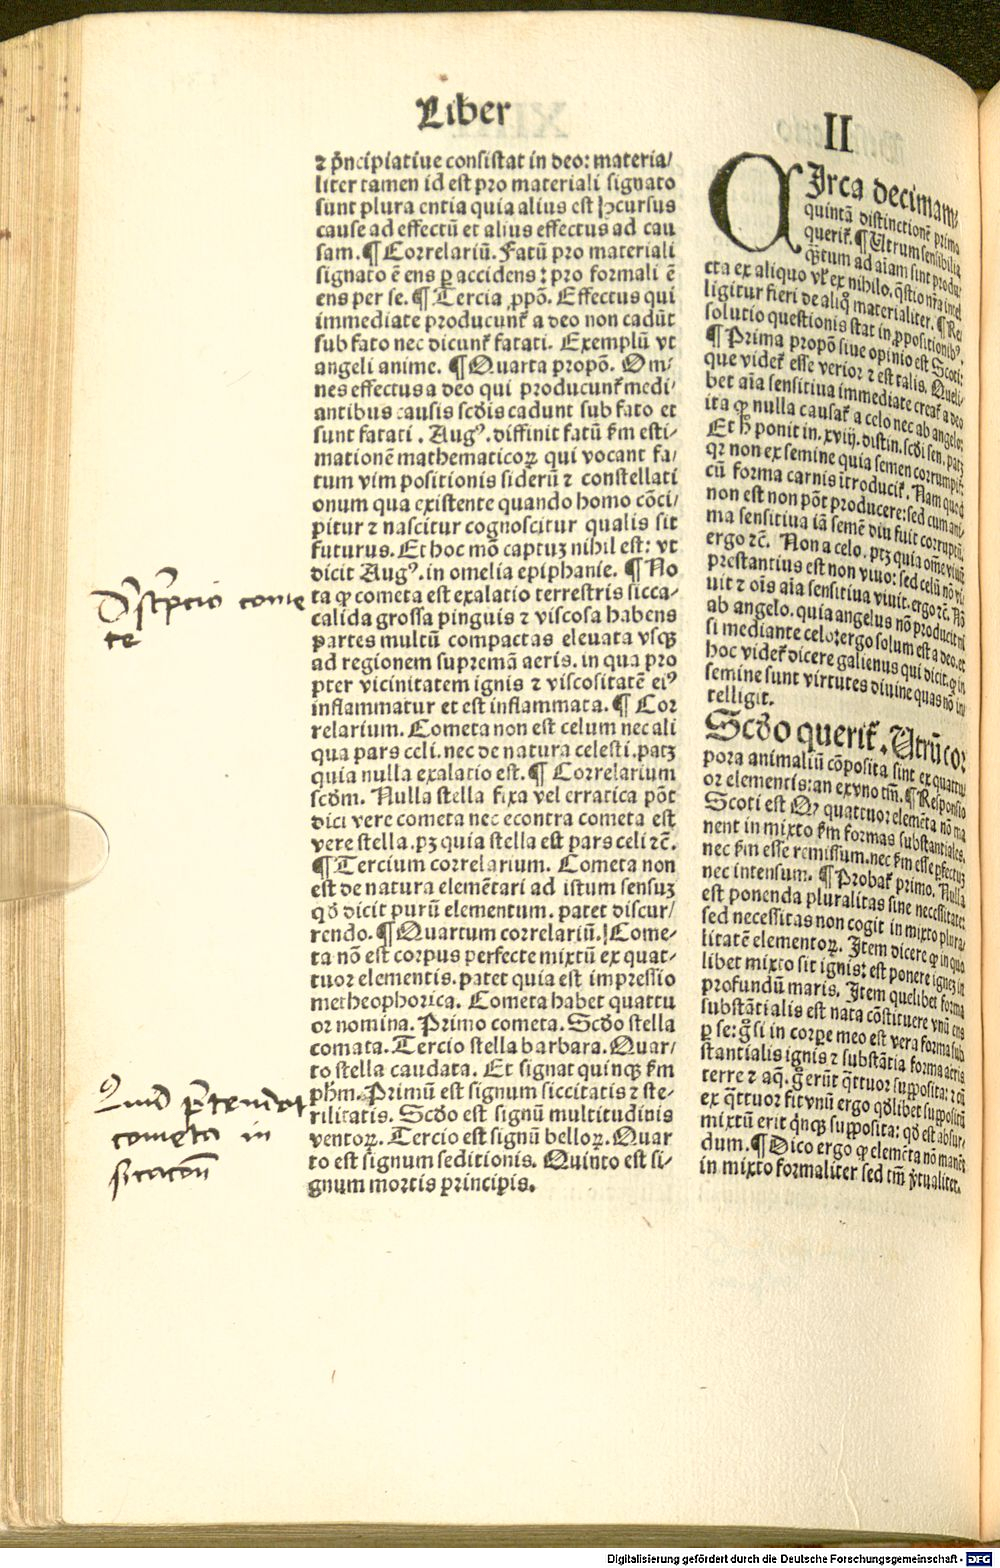 Liber
II
⁊ p̄ncipiatiue consistat in deo: materia/
liter tamen id est pro materiali signato
sunt plura entia quia alius est ꝯcursus
cause ad effectū et alius effectus ad cau
sam. ¶ Correlariū. Fatū pro materiali
signato ē ens ꝑ accidens: pro formali ē
ens per se. ¶ Tercia ꝓpō. Effectus qui
immediate producunt̄ a deo non cadūt
sub fato nec dicunt̄ fatati. Exemplū vt
angeli anime. ¶ Quarta propō. Om-
nes effectus a deo qui producunt̄ medi/
antibus causis scd̄is cadunt sub fato et
sunt fatati. Augꝰ. diffinit fatū ẜm esti-
mationē mathematicoꝝ qui vocant fa/
tum vim positionis siderū ⁊ constellati
onum qua existente quando homo cōci/
pitur ⁊ nascitur cognoscitur qualis sit
futurus. Et hoc mō captuꝫ nihil est: vt
dicit Augꝰ. in omelia epiphanie. ¶ No
ta ꝙ cometa est exalatio terrestris sicca-
calida grossa pinguis ⁊ viscosa habens
partes multū compactas eleuata vsqꝫ
ad regionem supremā aeris. in qua pro
pter vicinitatem ignis ⁊ viscositatē eiꝰ
inflammatur et est inflammata. ¶ Cor
relarium. Cometa non est celum nec ali
qua pars celi. nec de natura celesti. patꝫ
quia nulla exalatio est. ¶ Correlarium
scd̄m. Nulla stella fixa vel erratica pōt
dici vere cometa nec econtra cometa est
vere stella. pꝫ quia stella est pars celi ⁊c̄.
¶ Tercium correlarium. Cometa non
est de natura elemētari ad istum sensuꝫ
qd̄ dicit purū elementum. patet discur/
rendo. ¶ Quartum correlariū. Come-
ta nō est corpus perfecte mixtū ex quat-
tuor elementis. patet quia est impressio
metheophorica. Cometa habet quattu
or nomina. Primo cometa. Scd̄o stella
comata. Tercio stella barbara. Quar/
to stella caudata. Et signat quinqꝫ ẜm
ph̄m. Primū est signum siccitatis ⁊ ste-
rilitatis. Scd̄o est signū multitudinis
ventoꝝ. Tercio est signū belloꝝ. Quar
to est signum seditionis. Quinto est si-
gnum mortis principis.
come
te
cometa in
Circa decimam
quintā distinctionē prima
querit̄. ¶ Utrum sensibilia
q̄tum ad aīam sint produ
cta ex aliquo vl̓ ex nihilo. q̄stio nr̄a intel
ligitur fieri de aliq̊ materialiter. ¶ Re
solutio questionis stat in ꝓpositionibꝰ.
¶ Prima propō siue opinio est Scoti:
que videt̄ esse verior ⁊ est talis. Queli-
bet aīa sensitiua immediate creat̄ a deo
ita ꝙ nulla causat̄ a celo nec ab angelo:
Et h̄ ponit in. xviij. distin. scd̄i sen. patꝫ
qꝛ non ex semine quia semen corrumpit̄
cū forma carnis ītroducit̄. Nam quod
non est non pōt producere: sed cum ani-
ma sensitiua iā semē diu fuit corruptū.
ergo ⁊c̄. Non a celo. ptꝫ quia om̄e viuū
prestantius est non viuo: sed celū nō vi
uit ⁊ oīs aīa sensitiua viuit. ergo ⁊c̄. Nō
ab angelo. quia angelus nō producit ni
si mediante celo: ergo solum est a deo. et
hoc videt̄ dicere galienus qui dicit. ꝙ in
semine sunt virtutes diuine quas nō in
telligit.
Scd̄o querit̄. Utrū cor
pora animaliū cōposita sint ex quattu
or elementis: an ex vno tm̄. ¶ Responsio
Scoti est Qꝙ quattuor elemēta nō ma
nent in mixto ẜm formas substantiales.
nec ẜm esse remissum. nec ẜm esse ꝑfectuꝫ
nec intensum. ¶ Probat̄ primo. Nulla
est ponenda pluralitas sine necessitate:
sed necessitas non cogit in mixto plura/
litatē elementoꝝ. Item dicere ꝙ in quo
libet mixto sit ignis: est ponere igneꝫ in
profundū maris. Item quelibet forma
substātialis est nata cōstituere vnū ens
ꝑ se: g̊ si in corpore meo est vera forma sub
stantialis ignis ⁊ substātia forma aeris
terre ⁊ aq̄. g̊ erūt q̄ttuor supposita: ⁊ cū
ex q̄ttuor fit vnū ergo qd̄libet suppositū
mixtū erit q̄nqꝫ supposita: qd̄ est absur-
dum. ¶ Dico ergo ꝙ elemēta nō manēt
in mixto formaliter sed tm̄ v̓tualiter.
Digitalisierung gefördert durch die Deutsche Forschungsgemeinschaft - DFG